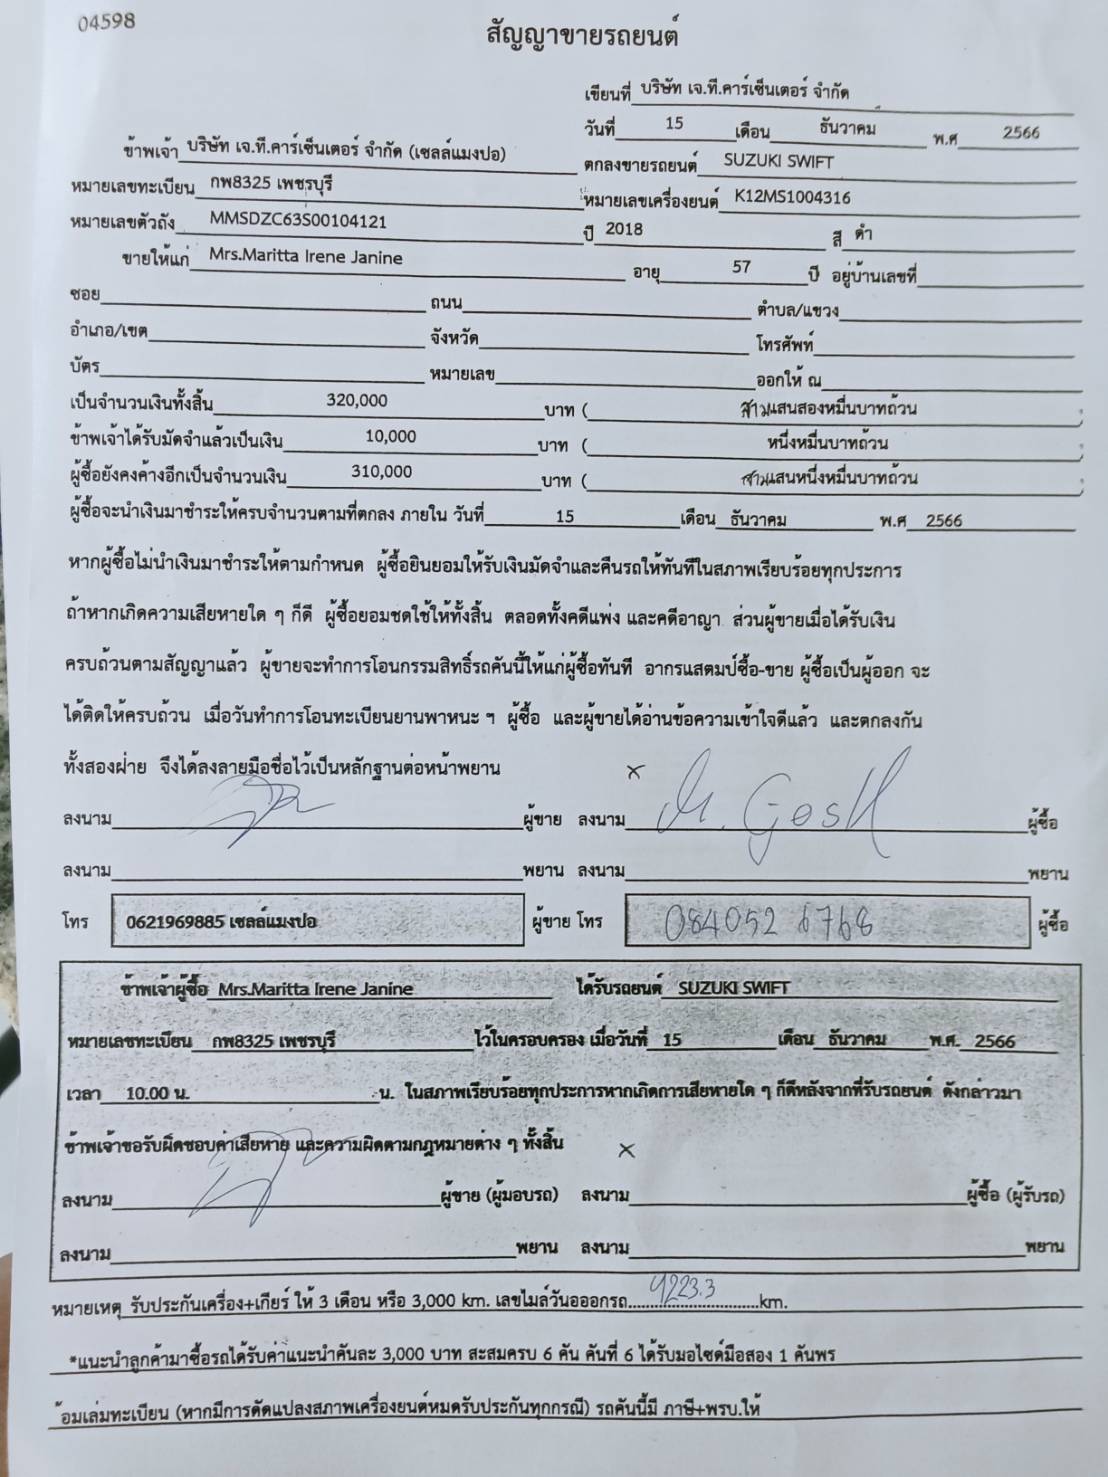 04598
สัญญาขายรถยนต์
เขียนที่ บริษัท เจ.ที.คาร์เซ็นเตอร์ จำกัด
วันที่ 15 เดือน ธันวาคม พ.ศ 2566
ข้าพเจ้า บริษัท เจ.ที.คาร์เซ็นเตอร์ จำกัด (เซลล์แมงปอ) ตกลงขายรถยนต์ SUZUKI SWIFT
หมายเลขทะเบียน กพ8325 เพชรบุรี หมายเลขเครื่องยนต์ K12MS1004316
หมายเลขตัวถัง MMSDZC63S00104121 ปี 2018 สี ดำ
ขายให้แก่ Mrs.Maritta Irene Janine อายุ 57 ปี อยู่บ้านเลขที่
ซอย ถนน ตำบล/แขวง
อำเภอ/เขต จังหวัด โทรศัพท์
บัตร หมายเลข ออกให้ ณ
เป็นจำนวนเงินทั้งสิ้น 320,000 บาท ( สามแสนสองหมื่นบาทถ้วน )
ข้าพเจ้าได้รับมัดจำแล้วเป็นเงิน 10,000 บาท ( หนึ่งหมื่นบาทถ้วน )
ผู้ซื้อยังคงค้างอีกเป็นจำนวนเงิน 310,000 บาท ( สามแสนหนึ่งหมื่นบาทถ้วน )
ผู้ซื้อจะนำเงินมาชำระให้ครบจำนวนตามที่ตกลง ภายใน วันที่ 15 เดือน ธันวาคม พ.ศ 2566
หากผู้ซื้อไม่นำเงินมาชำระให้ตามกำหนด ผู้ซื้อยินยอมให้รับเงินมัดจำและคืนรถให้ทันทีในสภาพเรียบร้อยทุกประการ
ถ้าหากเกิดความเสียหายใด ๆ ก็ดี ผู้ซื้อยอมชดใช้ให้ทั้งสิ้น ตลอดทั้งคดีแพ่ง และคดีอาญา ส่วนผู้ขายเมื่อได้รับเงิน
ครบถ้วนตามสัญญาแล้ว ผู้ขายจะทำการโอนกรรมสิทธิ์รถคันนี้ให้แก่ผู้ซื้อทันที อากรแสตมป์ซื้อ-ขาย ผู้ซื้อเป็นผู้ออก จะ
ได้ติดให้ครบถ้วน เมื่อวันทำการโอนทะเบียนยานพาหนะ ฯ ผู้ซื้อ และผู้ขายได้อ่านข้อความเข้าใจดีแล้ว และตกลงกัน
ทั้งสองฝ่าย จึงได้ลงลายมือชื่อไว้เป็นหลักฐานต่อหน้าพยาน x
ลงนาม ผู้ขาย ลงนาม M. Gosll ผู้ซื้อ
ลงนาม พยาน ลงนาม พยาน
โทร 0621969885 เซลล์แมงปอ ผู้ขาย โทร 0840526768 ผู้ซื้อ
ข้าพเจ้าผู้ซื้อ Mrs.Maritta Irene Janine ได้รับรถยนต์ SUZUKI SWIFT
หมายเลขทะเบียน กพ8325 เพชรบุรี ไว้ในครอบครอง เมื่อวันที่ 15 เดือน ธันวาคม พ.ศ. 2566
เวลา 10.00 น. น. ในสภาพเรียบร้อยทุกประการหากเกิดการเสียหายใด ๆ ก็ดีหลังจากที่รับรถยนต์ ดังกล่าวมา
ข้าพเจ้าขอรับผิดชอบค่าเสียหาย และความผิดตามกฎหมายต่าง ๆ ทั้งสิ้น x
ลงนาม ผู้ขาย (ผู้มอบรถ) ลงนาม ผู้ซื้อ (ผู้รับรถ)
ลงนาม พยาน ลงนาม พยาน
หมายเหตุ รับประกันเครื่อง+เกียร์ ให้ 3 เดือน หรือ 3,000 km. เลขไมล์วันอออกรถ 4223.3 km.
*แนะนำลูกค้ามาซื้อรถได้รับค่าแนะนำคันละ 3,000 บาท สะสมครบ 6 คัน คันที่ 6 ได้รับมอไซด์มือสอง 1 คันพร
้อมเล่มทะเบียน (หากมีการดัดแปลงสภาพเครื่องยนต์หมดรับประกันทุกกรณี) รถคันนี้มี ภาษี+พรบ.ให้